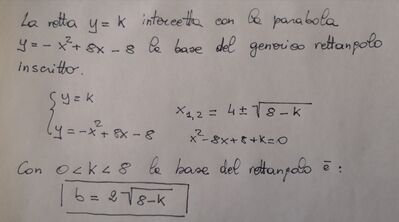 La retta y = k intercetta con la parabola
y = -x² + 8x - 8 la base del generico rettangolo
inscritto.
{ y = k
x₁,₂ = 4 ± √8-k
y = -x² + 8x - 8
x² - 8x + 8 + k = 0
Con 0 < k < 8 la base del rettangolo è :
b = 2√8-k